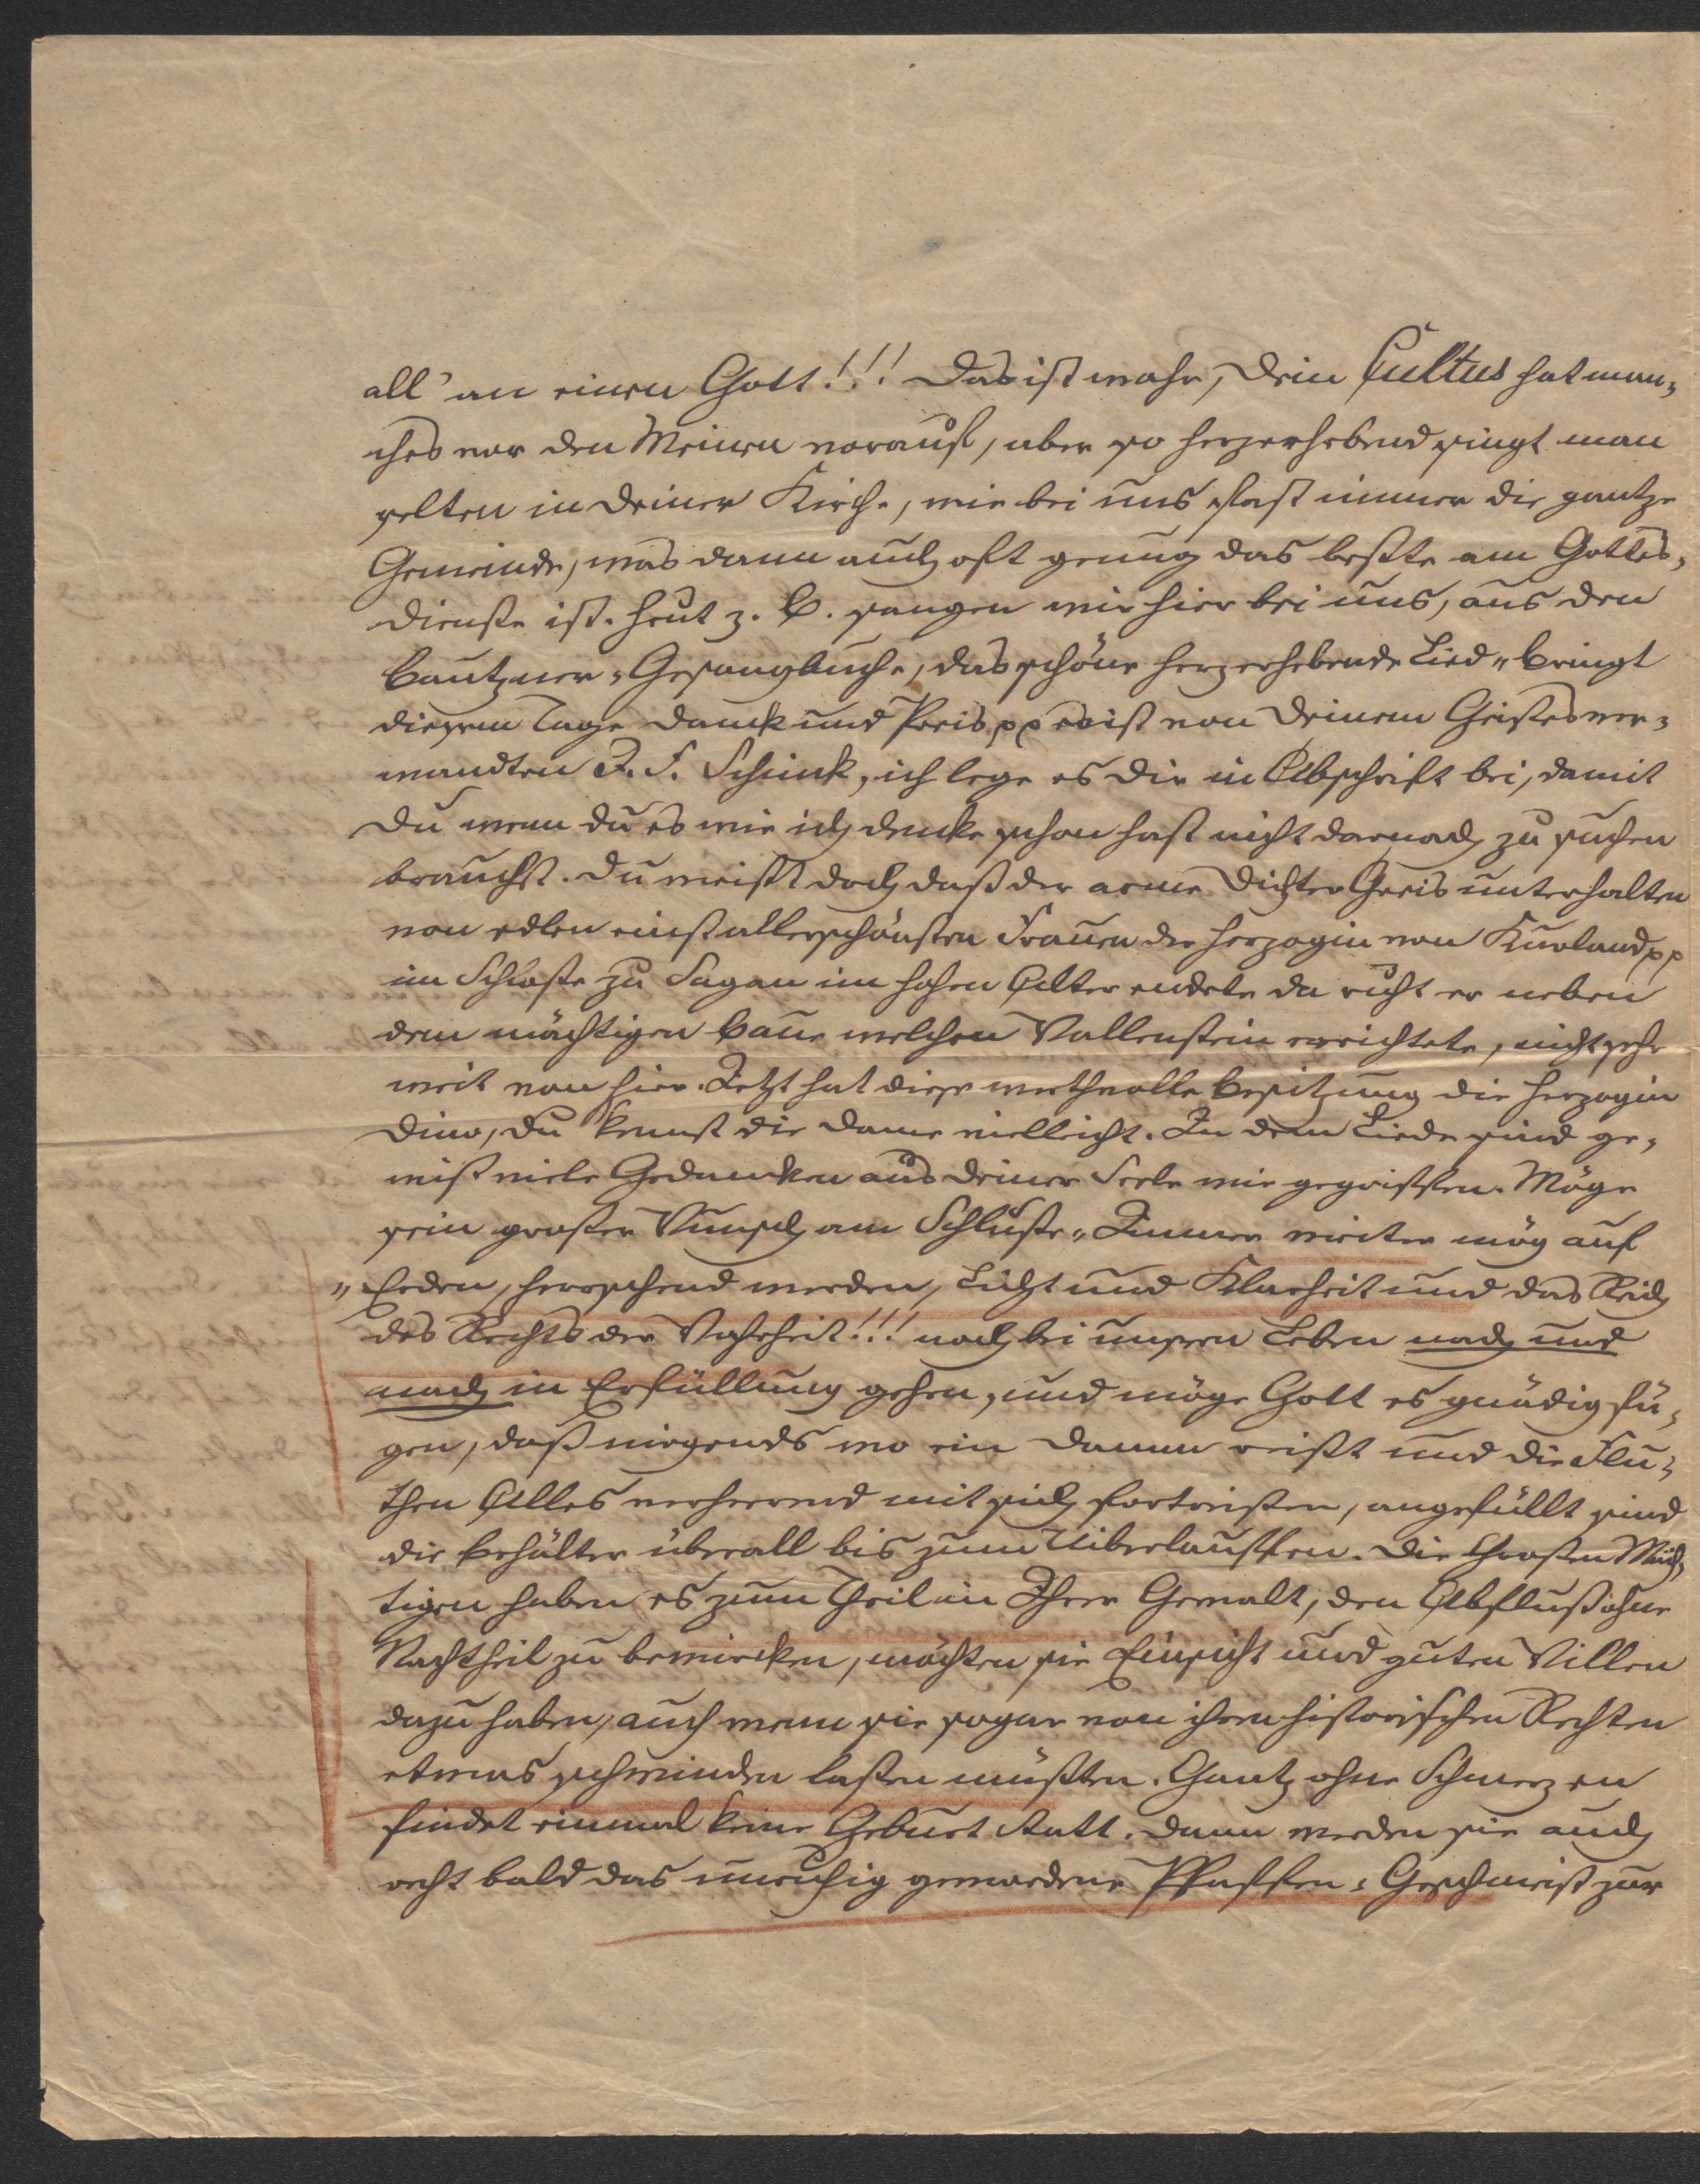 all' an einen Gott!!! Das ist wahr, Dein Cultus hat man-
ches vor den Meinen vorauß, aber so herzerhebend singt man
selten in Deiner Kirche, wie bei uns fast immer die gantze
Gemeinde, was dann auch oft genug das beßte am Gottes-
dienste ist. Heut z. B. sangen wir hier bei uns, aus den
Bautzner-Gesangbuche, das schöne herzerhebende Lied „Bringt
diesem Tage Dank und Preis pp es ist von Deinem Geistesver-
wandten J. F. Schink, ich lege es Dir in Abschrift bei, damit
Du wenn du es wie ich denke schon hast nicht darnach zu suchen
brauchst. Du weißt doch daß der arme Dichter Greis unterhalten
von edlen einst allerschönsten Frauen der Herzogin von Kurland pp
im Schloße zu Sagan im hohen Alter endete da ruht er neben
dem mächtigen Baue welchen Wallenstein errichtete, nicht sehr
weit von hier. Jetzt hat diese werthvolle Besitzung die Herzogin
Dino, Du kennst die Dame vielleicht. In dem Liede sind ge-
wiß viele Gedancken aus Deiner Seele wie gegriffen. Möge
sein großer Wunsch am Schluße „Immer weiter mög auf
„Erden, herrschend werden, Licht und Klarheit und das Reich
des Rechts der Wahrheit!!! noch bei unsern Leben nach und
nach in Erfüllung gehen, und möge Gott es gnädig fü-
gen, daß nirgends wo ein Damm reißt und die Flu-
then Alles verheerend mit sich fortreißen, angefüllt sind
die Behälter überall bis zum Uiberlauffen. Die Großen Mäch-
tigen haben es zum Theil in Ihrer Gewalt, den Abfluß ohne
Nachtheil zu bewircken, möchten sie Einsicht und guten Willen
dazu haben, auch wenn sie sogar von ihren historischen Rechten
etwas schwinden laßen müßten. Gantz ohne Schmerzen
findet einmal keine Geburt statt. Dann werden sie auch
recht bald das unruhig gewordene Pfaffen-Geschmeiß zur